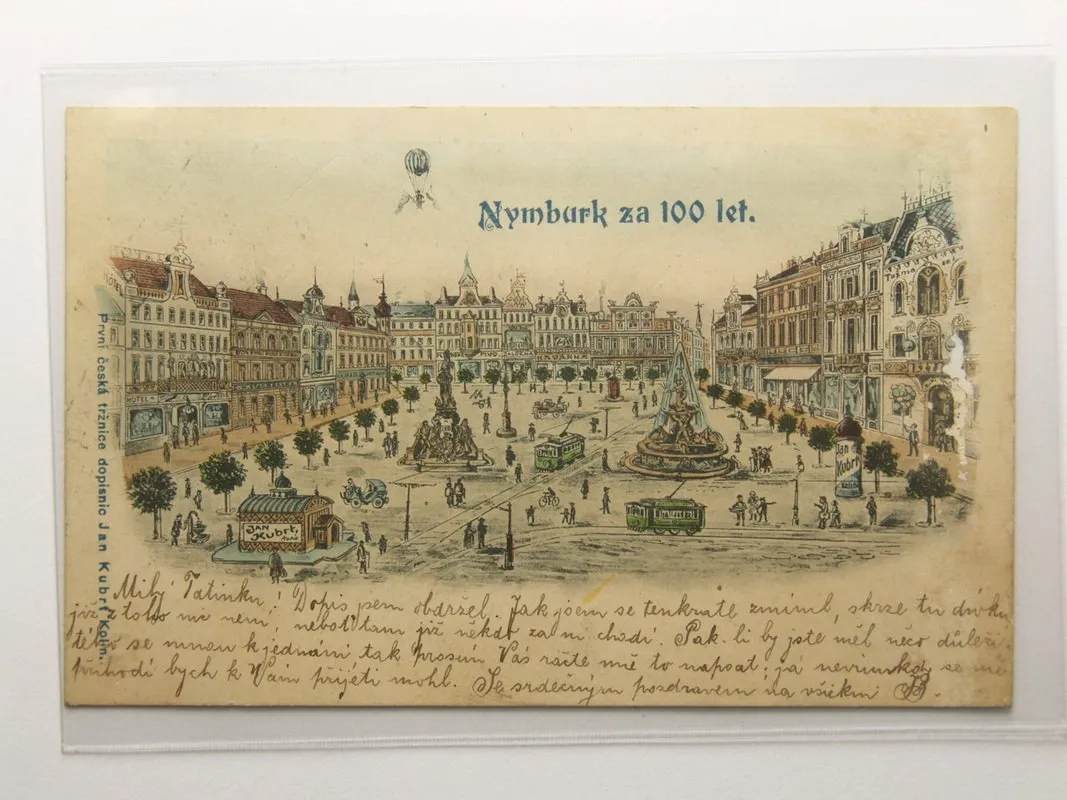 Nymburk za 100 let.
HOTEL
HOTEL
KAVÁRNA
Jan
Kubrt
Kolín
JAN
Kubrt,
První česká tržnice dopisnic Jan Kubrt Kolín.
Milý Tatínku! Dopis jsem obdržel. Jak jsem se tenkráte zmínil, skrze tu dívku
již z toho nic není, neboť tam již někdo za ní chodí. Pak-li by jste měl něco důleži-
tého se mnou k jednání tak prosím Vás račte mě to napsat; já nevím kdy se mě
příhodí bych k Vám přijeti mohl. Se srdečným pozdravem na všickni